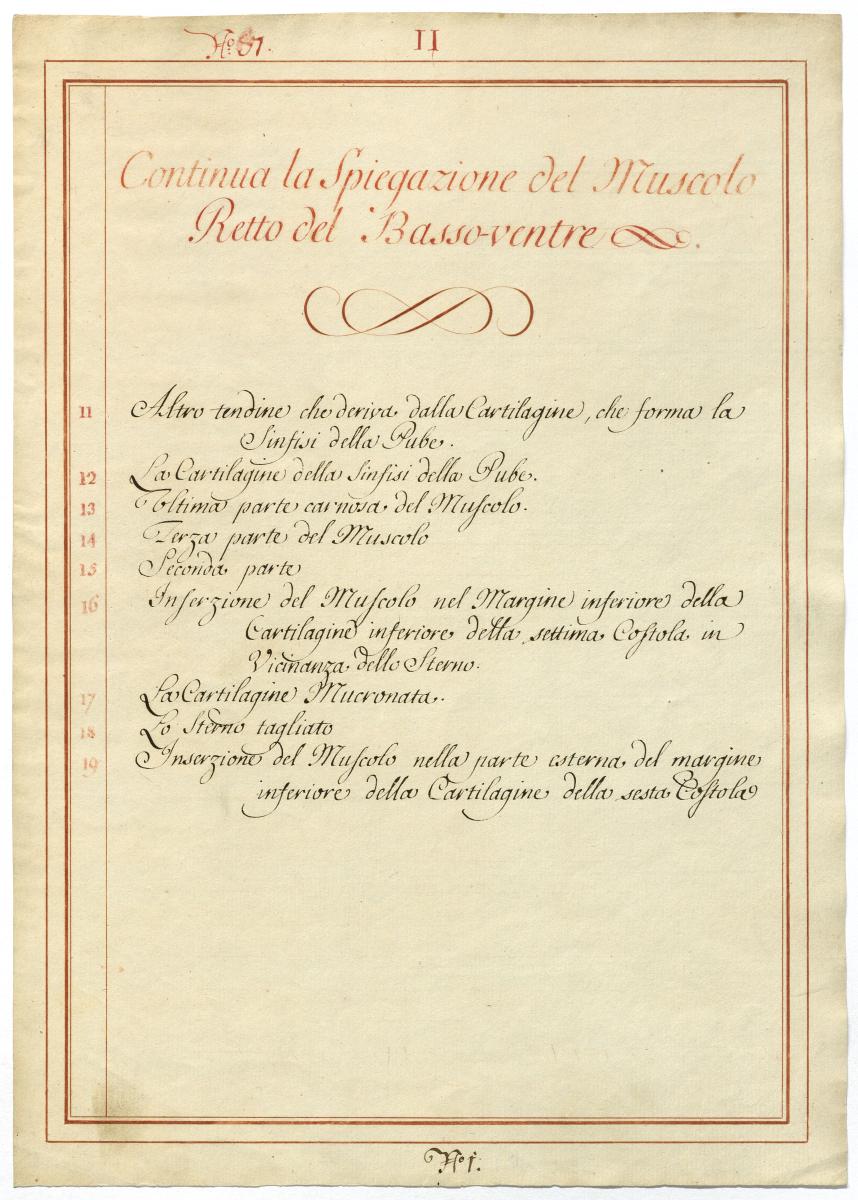 No: 57.
II
Continua la Spiegazione del Muscolo
Retto del Basso-ventre.
11 Altro tendine che deriva dalla Cartilagine, che forma la
Sinfisi della Pube.
12 La Cartilagine della Sinfisi della Pube.
13 Ultima parte carnosa del Muscolo.
14 Terza parte del Muscolo
15 Seconda parte
16 Inserzione del Muscolo nel Margine inferiore della
Cartilagine inferiore della settima Costola in
Vicinanza dello Sterno.
17 La Cartilagine Mucronata.
18 Lo Sterno tagliato
19 Inserzione del Muscolo nella parte esterna del margine
inferiore della Cartilagine della sesta Costola
No 1.